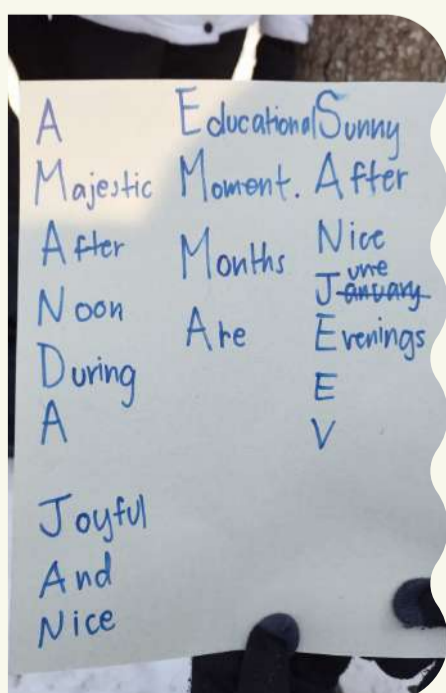 A
Majestic
After
Noon
During
A
Joyful
And
Nice
Educational
Moment.
Months
Are
Sunny
After
Nice
June
Evenings
E
V